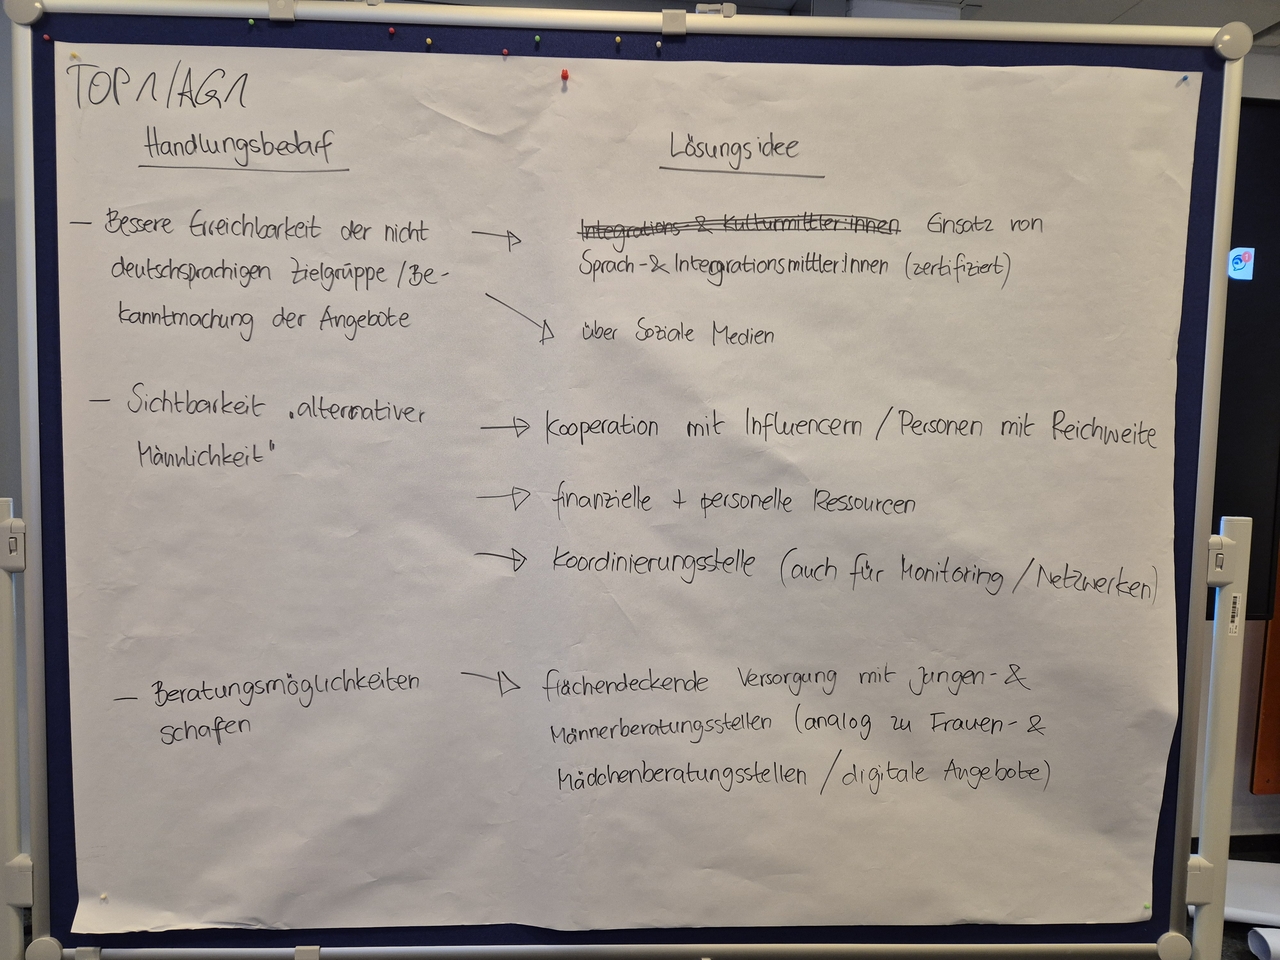 TOP1/AG1
Handlungsbedarf
Lösungsidee
– Bessere Erreichbarkeit der nicht
deutschsprachigen Zielgruppe / Be-
kanntmachung der Angebote
→ Integrations- & Kulturmittler:innen Einsatz von
Sprach- & Intergrationsmittler:Innen (zertifiziert)
→ über Soziale Medien
– Sichtbarkeit „alternativer
Männlichkeit"
→ Kooperation mit Influencern / Personen mit Reichweite
→ finanzielle + personelle Ressourcen
→ Koordinierungsstelle (auch für Monitoring / Netzwerken)
– Beratungsmöglichkeiten
schafen
→ flächendeckende Versorgung mit Jungen- &
Männerberatungsstellen (analog zu Frauen- &
Mädchenberatungsstellen / digitale Angebote)